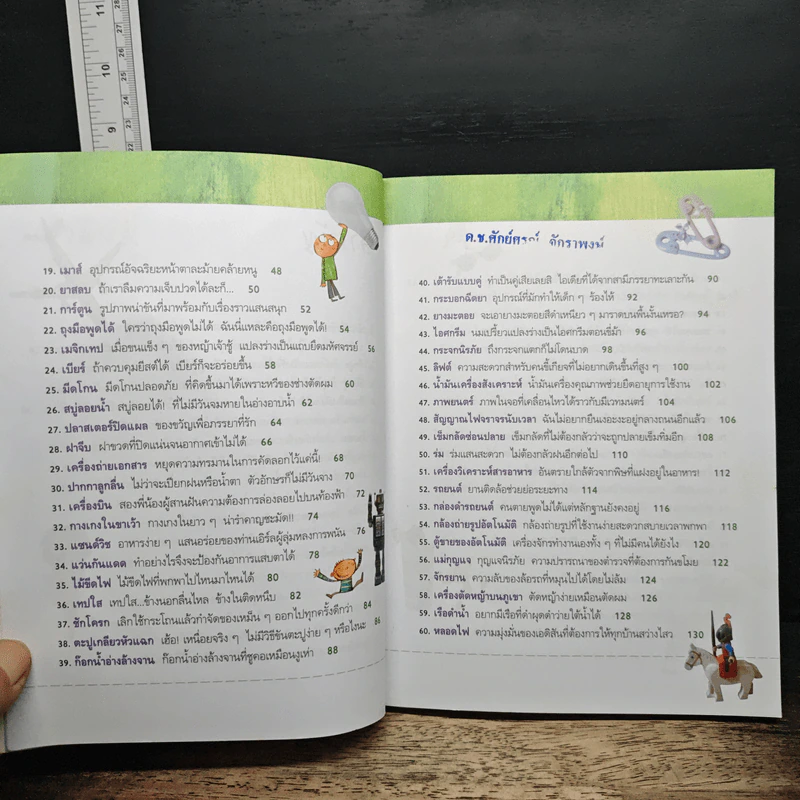 11
10
9
28
27
26
25
24
23
22
19. เมาส์ อุปกรณ์อัจฉริยะหน้าตาละม้ายคล้ายหนู 48
20. ยาสลบ ถ้าเราลืมความเจ็บปวดได้ละก็... 50
21. การ์ตูน รูปภาพน่าขันที่มาพร้อมกับเรื่องราวแสนสนุก 52
22. ถุงมือพูดได้ ใครว่าถุงมือพูดไม่ได้ ฉันนี่แหละคือถุงมือพูดได้! 54
23. เมจิกเทป เมื่อขนแข็ง ๆ ของหญ้าเจ้าชู้ แปลงร่างเป็นแถบยึดมหัศจรรย์ 56
24. เบียร์ ถ้าควบคุมยีสต์ได้ เบียร์ก็จะอร่อยขึ้น 58
25. มีดโกน มีดโกนปลอดภัย ที่คิดขึ้นมาได้เพราะหวีของช่างตัดผม 60
26. สบู่ลอยน้ำ สบู่ลอยได้! ที่ไม่มีวันจมหายในอ่างอาบน้ำ 62
27. ปลาสเตอร์ปิดแผล ของขวัญเพื่อภรรยาที่รัก 64
28. ฝาจีบ ฝาขวดที่ปิดแน่นจนอากาศเข้าไม่ได้ 66
29. เครื่องถ่ายเอกสาร หยุดความทรมานในการคัดลอกไว้แค่นี้! 68
30. ปากกาลูกลื่น ไม่ว่าจะเปียกฝนหรือน้ำตา ตัวอักษรก็ไม่มีวันจาง 70
31. เครื่องบิน สองพี่น้องผู้สานฝันความต้องการล่องลอยไปบนท้องฟ้า 72
32. กางเกงในขาเว้า กางเกงในยาว ๆ น่ารำคาญชะมัด!! 74
33. แซนด์วิช อาหารง่าย ๆ แสนอร่อยของท่านเอิร์ลผู้ลุ่มหลงการพนัน 76
34. แว่นกันแดด ทำอย่างไรจึงจะป้องกันอาการแสบตาได้ 78
35. ไม้ขีดไฟ ไม้ขีดไฟที่พกพาไปไหนมาไหนได้ 80
36. เทปใส เทปใส...ข้างนอกลื่นไหล ข้างในติดหนึบ 82
37. ชักโครก เลิกใช้กระโถนแล้วกำจัดของเหม็น ๆ ออกไปทุกครั้งดีกว่า 84
38. ตะปูเกลียวหัวแฉก เฮ้อ! เหนื่อยจริง ๆ ไม่มีวิธีขันตะปูง่าย ๆ หรือไงนะ 86
39. ก๊อกน้ำอ่างล้างจาน ก๊อกน้ำอ่างล้างจานที่ชูคอเหมือนงูเห่า 88
ด.ช.ศักย์ศรณ์ จักราพงษ์
40. เต้ารับแบบคู่ ทำเป็นคู่เสียเลยสิ ไอเดียที่ได้จากสามีภรรยาทะเลาะกัน 90
41. กระบอกฉีดยา อุปกรณ์ที่มักทำให้เด็ก ๆ ร้องไห้ 92
42. ยางมะตอย จะเอายางมะตอยสีดำเหนียว ๆ มาราดบนพื้นงั้นเหรอ? 94
43. ไอศกรีม นมเปรี้ยวแปลงร่างเป็นไอศกรีมตอนขี่ม้า 96
44. กระจกนิรภัย ถึงกระจกแตกก็ไม่โดนบาด 98
45. ลิฟต์ ความสะดวกสำหรับคนขี้เกียจที่ไม่อยากเดินขึ้นที่สูง ๆ 100
46. น้ำมันเครื่องสังเคราะห์ น้ำมันเครื่องคุณภาพช่วยยืดอายุการใช้งาน 102
47. ภาพยนตร์ ภาพในจอที่เคลื่อนไหวได้ราวกับมีเวทมนตร์ 104
48. สัญญาณไฟจราจรนับเวลา ฉันไม่อยากยืนเงอะงะอยู่กลางถนนอีกแล้ว 106
49. เข็มกลัดซ่อนปลาย เข็มกลัดที่ไม่ต้องกลัวว่าจะถูกปลายเข็มทิ่มอีก 108
50. ร่ม ร่มแสนสะดวก ไม่ต้องกลัวฝนอีกต่อไป 110
51. เครื่องวิเคราะห์สารอาหาร อันตรายใกล้ตัวจากพิษที่แฝงอยู่ในอาหาร! 112
52. รถยนต์ ยานติดล้อช่วยย่อระยะทาง 114
53. กล่องดำรถยนต์ คนตายพูดไม่ได้แต่หลักฐานยังคงอยู่ 116
54. กล้องถ่ายรูปอัตโนมัติ กล้องถ่ายรูปที่ใช้งานง่ายสะดวกสบายเวลาพกพา 118
55. ตู้ขายของอัตโนมัติ เครื่องจักรทำงานเองทั้ง ๆ ที่ไม่มีคนได้ยังไง 120
56. แม่กุญแจ กุญแจนิรภัย ความปรารถนาของตำรวจที่ต้องการกันขโมย 122
57. จักรยาน ความลับของล้อรถที่หมุนไปได้โดยไม่ล้ม 124
58. เครื่องตัดหญ้าบนภูเขา ตัดหญ้าง่ายเหมือนตัดผม 126
59. เรือดำน้ำ อยากมีเรือที่ดำผุดดำว่ายใต้น้ำได้ 128
60. หลอดไฟ ความมุ่งมั่นของเอดิสันที่ต้องการให้ทุกบ้านสว่างไสว 130